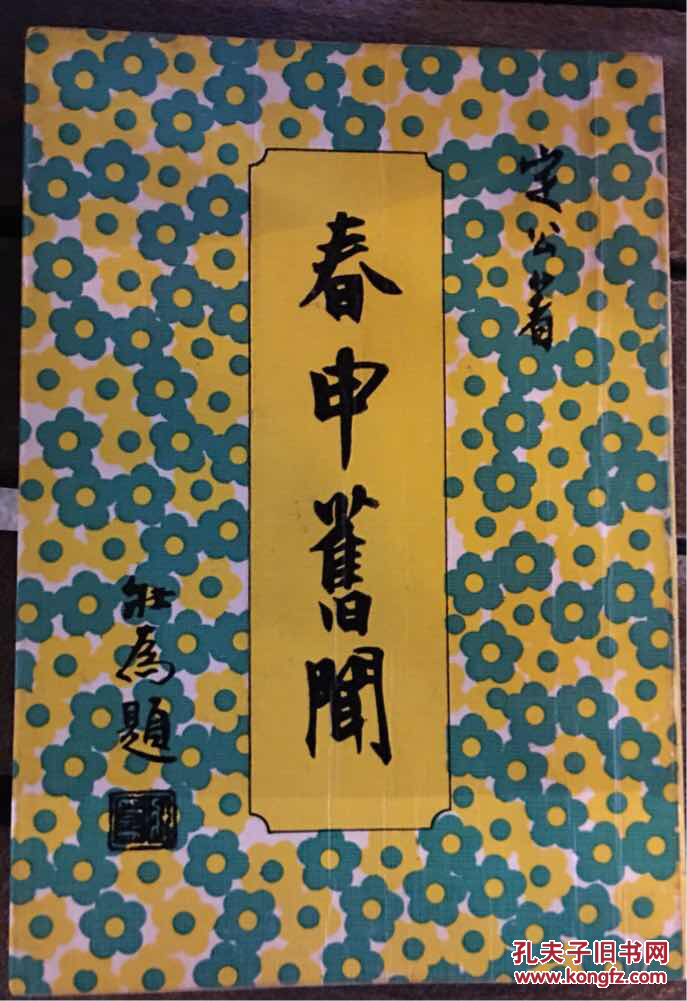 定公著
春申舊聞
壯為題
孔夫子旧书网
www.kongfz.com